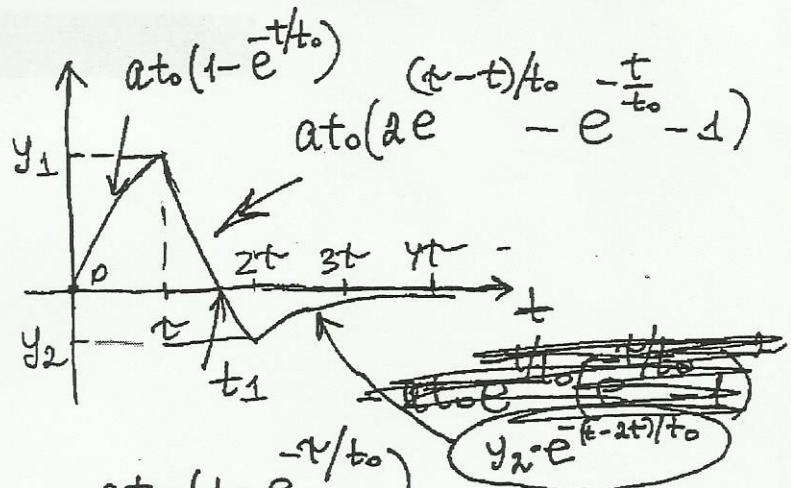 at₀(1-e^{-t/t₀})
at₀(2e^{(τ-t)/t₀} - e^{-t/t₀} - 1)
y₁
0
τ
2τ
3τ
4τ
t
y₂
t₁
y₂·e^{-(t-2τ)/t₀}
at₀(1-e^{-τ/t₀})